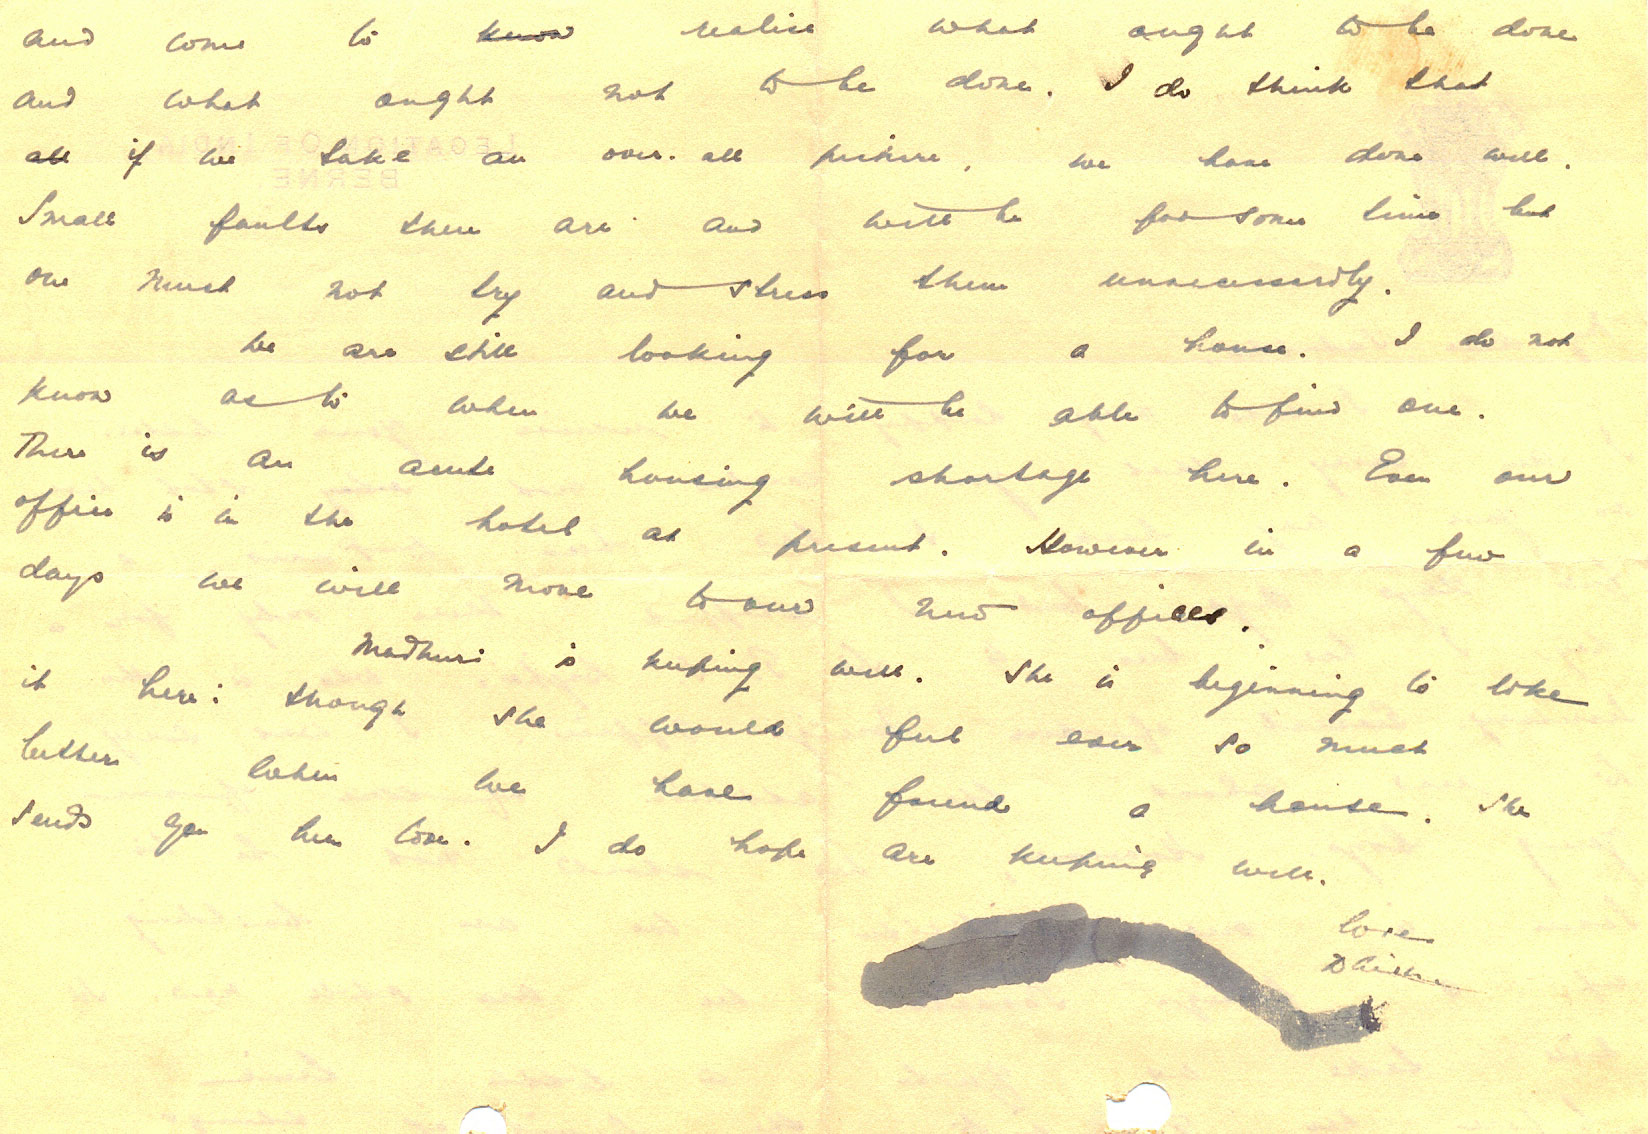 and come to know realise what ought to be done
and what ought not to be done. I do think that
all if we take an over-all picture, we have done well.
LEGATION OF INDIA
BERNE
Small faults there are and will be for some time but
one must not try and stress them unnecessarily.
We are still looking for a house. I do not
know as to when we will be able to find one.
There is an acute housing shortage here. Even our
office is in the hotel at present. However in a few
days we will move to our new offices.
Madhuri is keeping well. She is beginning to like
it here: though she would feel ever so much
better when we have found a house. She
sends you her love. I do hope are keeping well.
Love